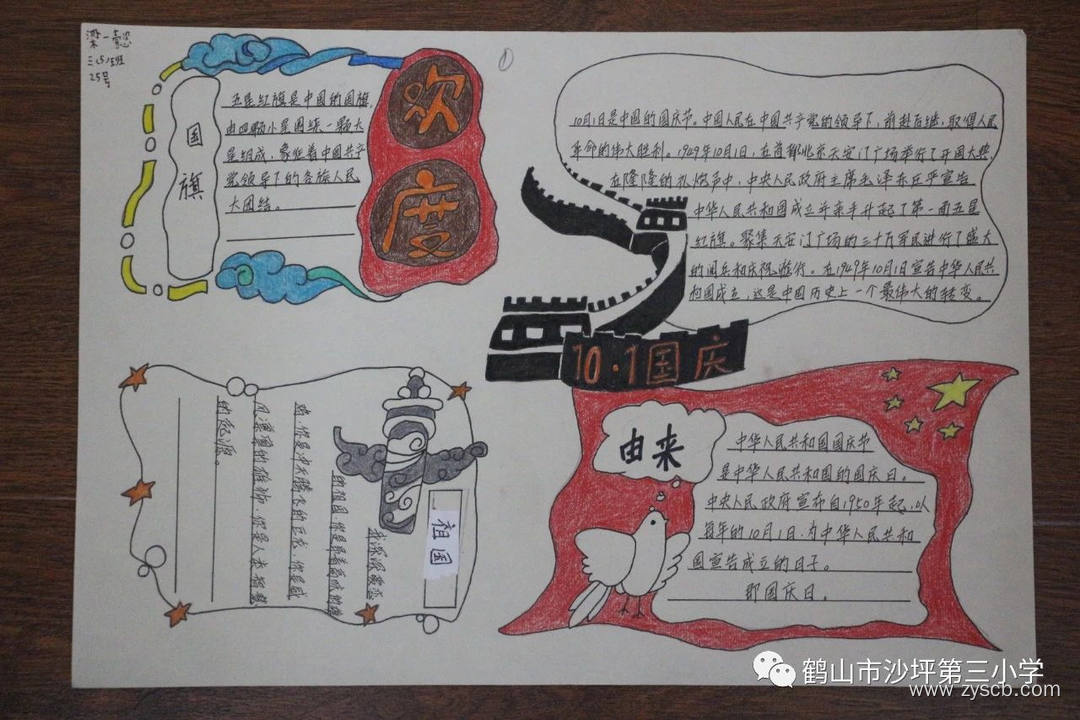 梁一懿
三(5)班
25号
①
欢度
国旗
五星红旗是中国的国旗,
由四颗小星围绕一颗大
星组成,象征着中国共产
党领导下的各族人民
大团结。
10月1日是中国的国庆节。中国人民在中国共产党的领导下,前赴后继,取得人民
革命的伟大胜利。1949年10月1日,在首都北京天安门广场举行了开国大典,
在隆隆的礼炮声中,中央人民政府主席毛泽东庄严宣告
中华人民共和国成立并亲手升起了第一面五星
红旗。聚集天安门广场的三十万军民进行了盛大
的阅兵和庆祝游行。在1949年10月1日宣告中华人民共
和国成立,这是中国历史上一个最伟大的转变。
10·1国庆
祖国
我深深爱恋
的祖国你是昂首高吭的雄
鸡,你是冲天腾飞的巨龙,你是威
风凛凛的雄狮,你是人类智慧
的起源。
由来
中华人民共和国国庆节
是中华人民共和国的国庆日。
中央人民政府宣布自1950年起,以
每年的10月1日,为中华人民共和
国宣告成立的日子。
即国庆日。
鹤山市沙坪第三小学
www.zyscb.com